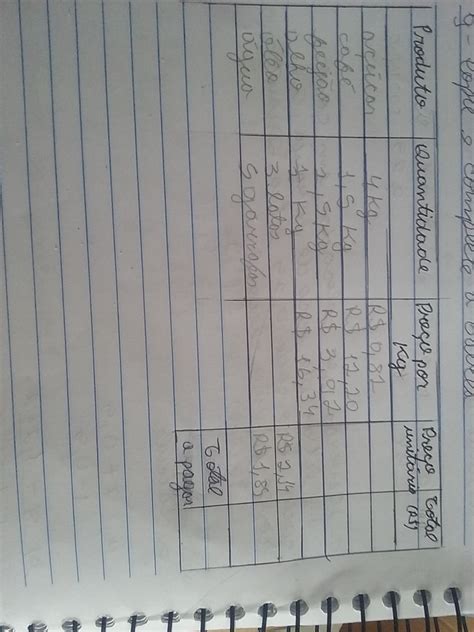 9 - copie e complete a tabela
Produto Quantidade Preço por Kg Preço unitário Total (R$)
açúcar 4 kg R$ 0,82
café 1,5 Kg R$ 12,20
feijão Kg R$
alho Kg R$ 16,34
óleo 3 latas R$ 2,14
água 5 garrafas R$ 1,85
Total
a pagar